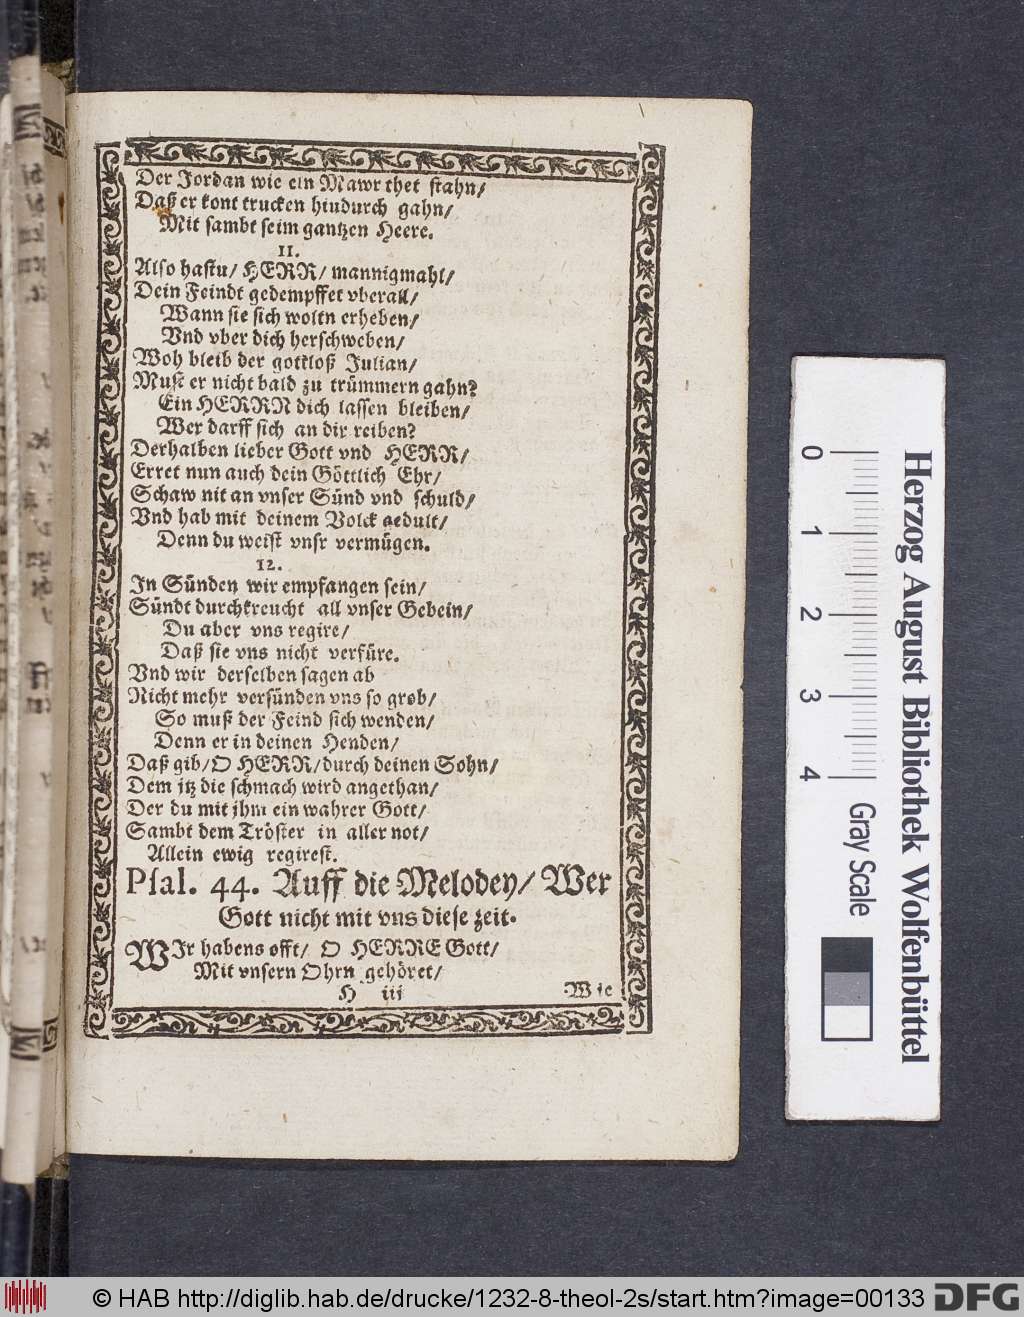 Der Jordan wie ein Mawr thet stahn/
Daß er kont trucken hindurch gahn/
Mit sambt seim gantzen Heere.
11.
Also hastu/ HERR/ mannigmahl/
Dein Feindt gedempffet vberall/
Wann sie sich woltn erheben/
Vnd vber dich herschweben/
Woh bleib der gottloß Julian/
Must er nicht bald zu trümmern gahn?
Ein HERRN dich lassen bleiben/
Wer darff sich an dir reiben?
Derhalben lieber Gott vnd HERR/
Erret nun auch dein Göttlich Ehr/
Schaw nit an vnser Sünd vnd schuld/
Vnd hab mit deinem Volck gedult/
Denn du weist vnsr vermügen.
12.
In Sünden wir empfangen sein/
Sündt durchkreucht all vnser Gebein/
Du aber vns regire/
Daß sie vns nicht verfüre.
Vnd wir derselben sagen ab
Nicht mehr versünden vns so grob/
So muß der Feind sich wenden/
Denn er in deinen Henden/
Daß gib/ O HERR/ durch deinen Sohn/
Dem itz die schmach wird angethan/
Der du mit jhm ein wahrer Gott/
Sambt dem Tröster in aller not/
Allein ewig regirest.
Psal. 44. Auff die Melodey/ Wer
Gott nicht mit vns diese zeit.
WIr habens offt/ O HERRE Gott/
Mit vnsern Ohrn gehöret/
H iii Wie
0 1 2 3 4
Gray Scale
Herzog August Bibliothek Wolfenbüttel
© HAB http://diglib.hab.de/drucke/1232-8-theol-2s/start.htm?image=00133
DFG